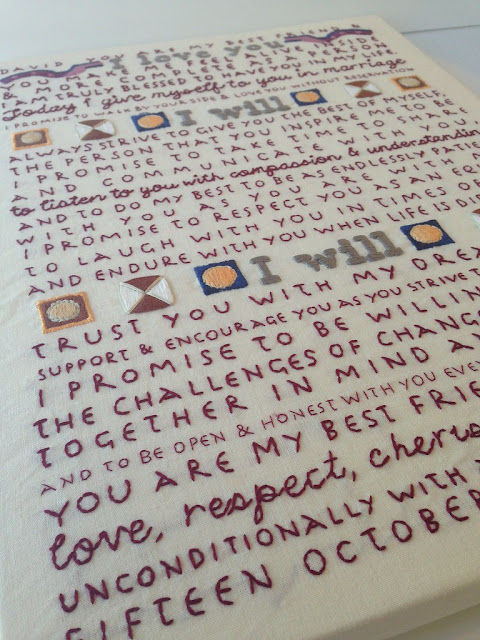 DAVID YOU ARE MY BEST FRIEND &
I love you
YOU MAKE COMPLETE AS A PERSON
I AM TRULY BLESSED TO HAVE YOU IN MY
Today I give myself to you in marriage
I PROMISE TO BY YOUR SIDE & LOVE YOU WITHOUT RESERVATION
I will
ALWAYS STRIVE TO GIVE YOU THE BEST OF MYSELF
THE PERSON THAT YOU INSPIRE ME TO BE
I PROMISE TO TAKE TIME TO SHARE
AND COMMUNICATE WITH YOU
to listen to you with compassion & understanding
AND TO DO MY BEST TO BE AS ENDLESSLY PATIE
WITH YOU AS YOU ARE WITH
I PROMISE TO RESPECT YOU AS AN
TO LAUGH WITH YOU IN TIMES OF
AND ENDURE WITH YOU WHEN LIFE IS DI
I will
TRUST YOU WITH MY DREA
SUPPORT & ENCOURAGE YOU AS YOU STRIVE T
I PROMISE TO BE WILLIN
THE CHALLENGES OF CHANG
TOGETHER IN MIND A
AND TO BE OPEN & HONEST WITH YOU EVE
YOU ARE MY BEST FRIE
love, respect, cheris
UNCONDITIONALLY WITH
FIFTEEN OCTOBER